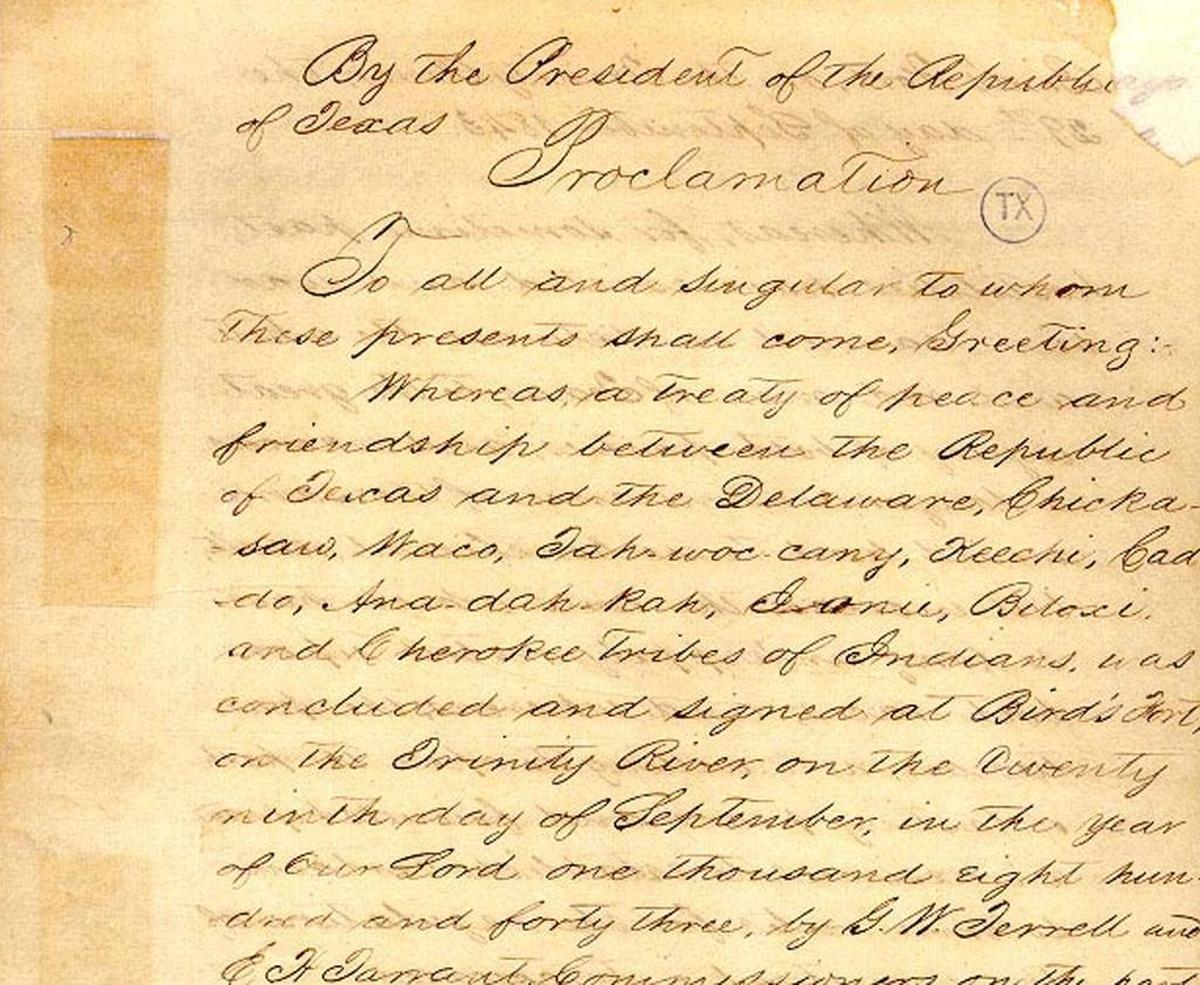 By the President of the Republic
of Texas
Proclamation
TX
To all and singular to whom
these presents shall come, Greeting:-
Whereas, a treaty of peace and
friendship between the Republic
of Texas and the Delaware, Chicka-
saw, Waco, Tah-woc-cany, Keechi, Cad
-do, Ana-dah-kah, Ionie, Biloxi,
and Cherokee tribes of Indians, was
concluded and signed at Bird's Fort,
on the Trinity River, on the twenty
ninth day of September, in the year
of Our Lord one thousand eight hun-
dred and forty three, by G. W. Terrell and
E H Tarrant, Commissioners on the part